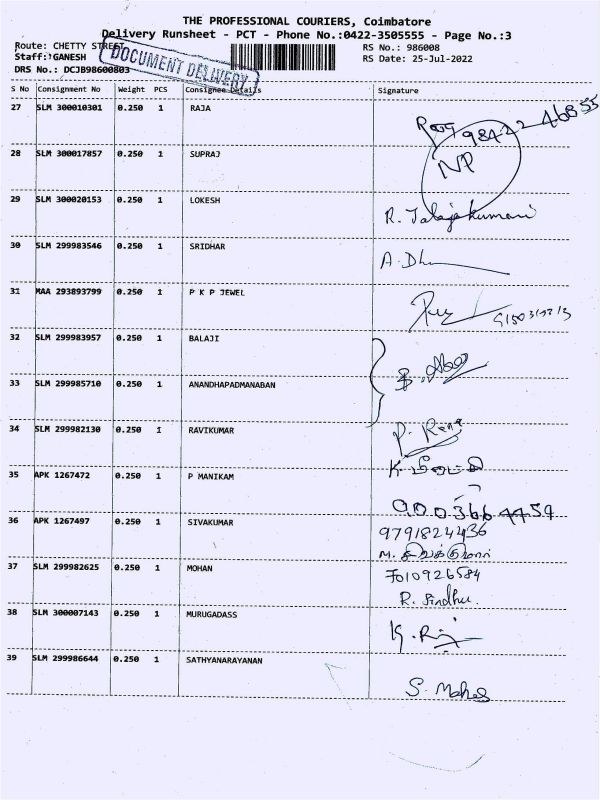 THE PROFESSIONAL COURIERS, Coimbatore
Delivery Runsheet - PCT - Phone No.:0422-3505555 - Page No.:3
Route: CHETTY STREET RS No.: 986008
Staff: GANESH RS Date: 25-Jul-2022
DOCUMENT DELIVERY
DRS No.: DCJB98600803
S No Consignment No Weight PCS Consignee Details Signature
27 SLM 300010301 0.250 1 RAJA
28 SLM 300017857 0.250 1 SUPRAJ
29 SLM 300020153 0.250 1 LOKESH
30 SLM 299983546 0.250 1 SRIDHAR A. Dh
31 MAA 293893799 0.250 1 P K P JEWEL
32 SLM 299983957 0.250 1 BALAJI
33 SLM 299985710 0.250 1 ANANDHAPADMANABAN
34 SLM 299982130 0.250 1 RAVIKUMAR
35 APK 1267472 0.250 1 P MANIKAM
36 APK 1267497 0.250 1 SIVAKUMAR 9791824436
M. சிவக்குமார்
37 SLM 299982625 0.250 1 MOHAN 7010926584
R. Sindhu.
38 SLM 300007143 0.250 1 MURUGADASS
39 SLM 299986644 0.250 1 SATHYANARAYANAN
S. Mahes